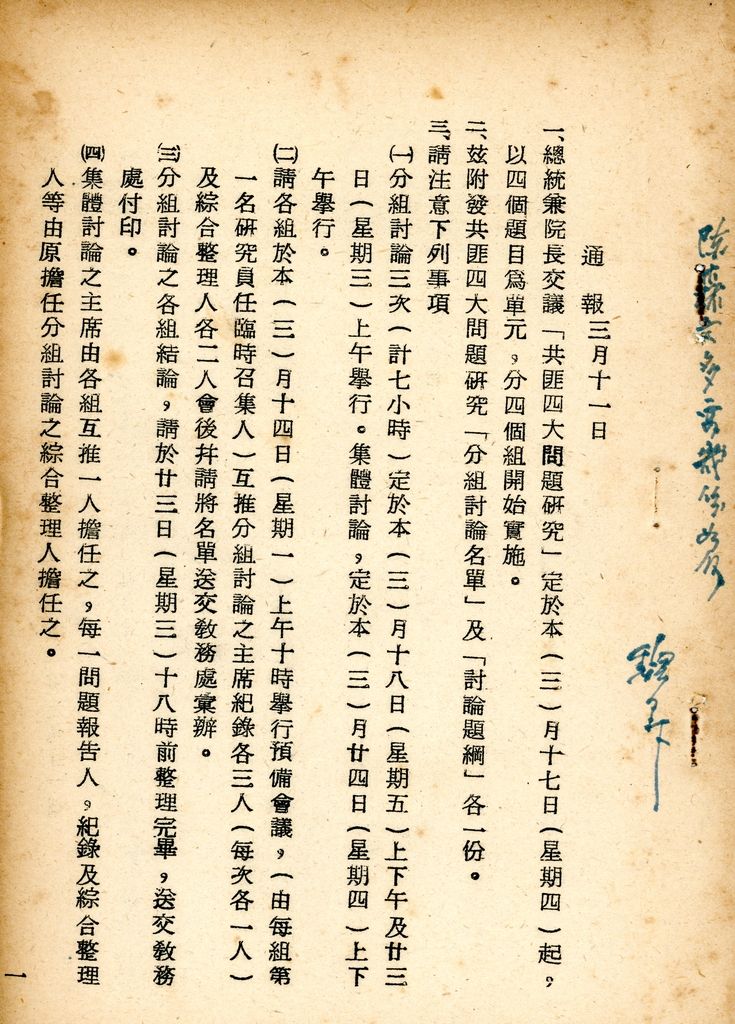 通報 三月十一日
一、總統兼院長交議「共匪四大問題研究」定於本(三)月十七日(星期四)起,
以四個題目爲單元,分四個組開始實施。
二、茲附發共匪四大問題研究「分組討論名單」及「討論題綱」各一份。
三、請注意下列事項
㈠分組討論三次(計七小時)定於本(三)月十八日(星期五)上下午及廿三
日(星期三)上午舉行。集體討論,定於本(三)月廿四日(星期四)上下
午舉行。
㈡請各組於本(三)月十四日(星期一)上午十時舉行預備會議,(由每組第
一名研究員任臨時召集人)互推分組討論之主席紀錄各三人(每次各一人)
及綜合整理人各二人會後幷請將名單送交敎務處彙辦。
㈢分組討論之各組結論,請於廿三日(星期三)十八時前整理完畢,送交敎務
處付印。
㈣集體討論之主席由各組互推一人擔任之,每一問題報告人,紀錄及綜合整理
人等由原擔任分組討論之綜合整理人擔任之。
一